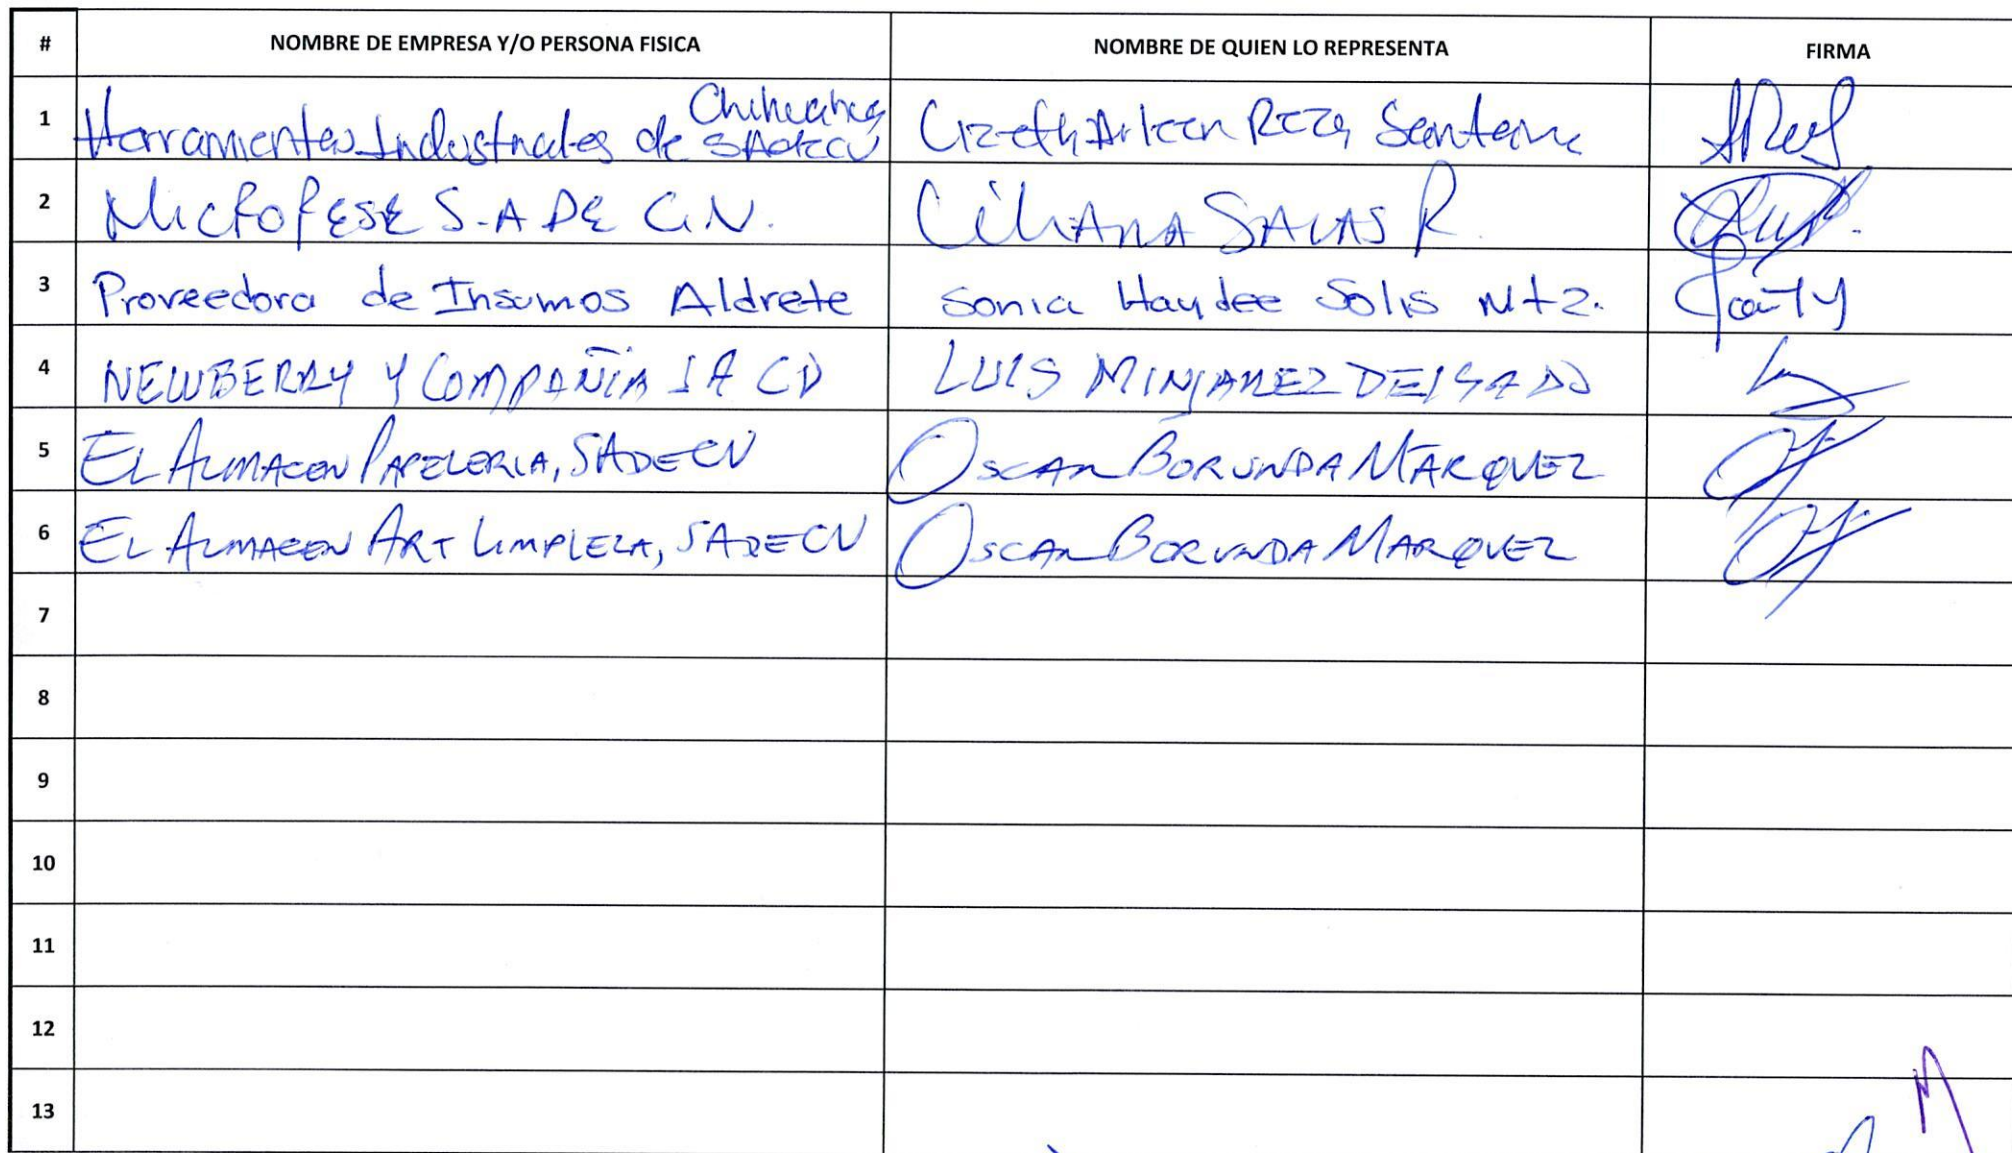 # NOMBRE DE EMPRESA Y/O PERSONA FISICA NOMBRE DE QUIEN LO REPRESENTA FIRMA
1 Herramientas Industriales de Chihuahua SAdeCV Lizeth Arleen Reza Santana
2 MICROPESE S.A DE C.V. LILIANA SALAS R.
3 Proveedora de Insumos Aldrete Sonia Haydee Solis Mtz.
4 NEWBERRY Y COMPAÑIA SA CV LUIS MINJAREZ DELGADO
5 EL ALMACEN PAPELERIA, SADECV OSCAR BORUNDA MARQUEZ
6 EL ALMACEN ART LIMPIEZA, SADECV OSCAR BORUNDA MARQUEZ
7
8
9
10
11
12
13